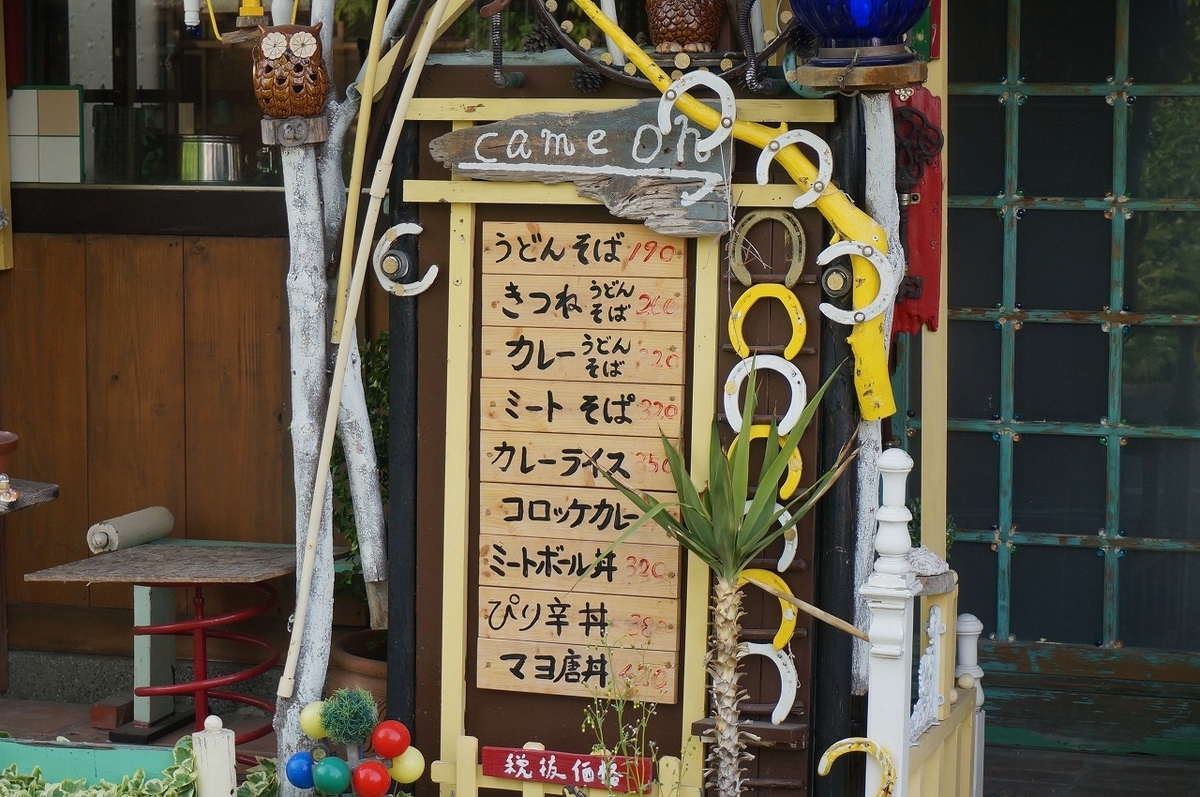 came on
うどん そば 190
きつね うどん そば 260
カレー うどん そば 320
ミート そば 320
カレーライス 350
コロッケカレー
ミートボール丼 320
ぴり辛丼 380
マヨ唐丼 420
税抜価格